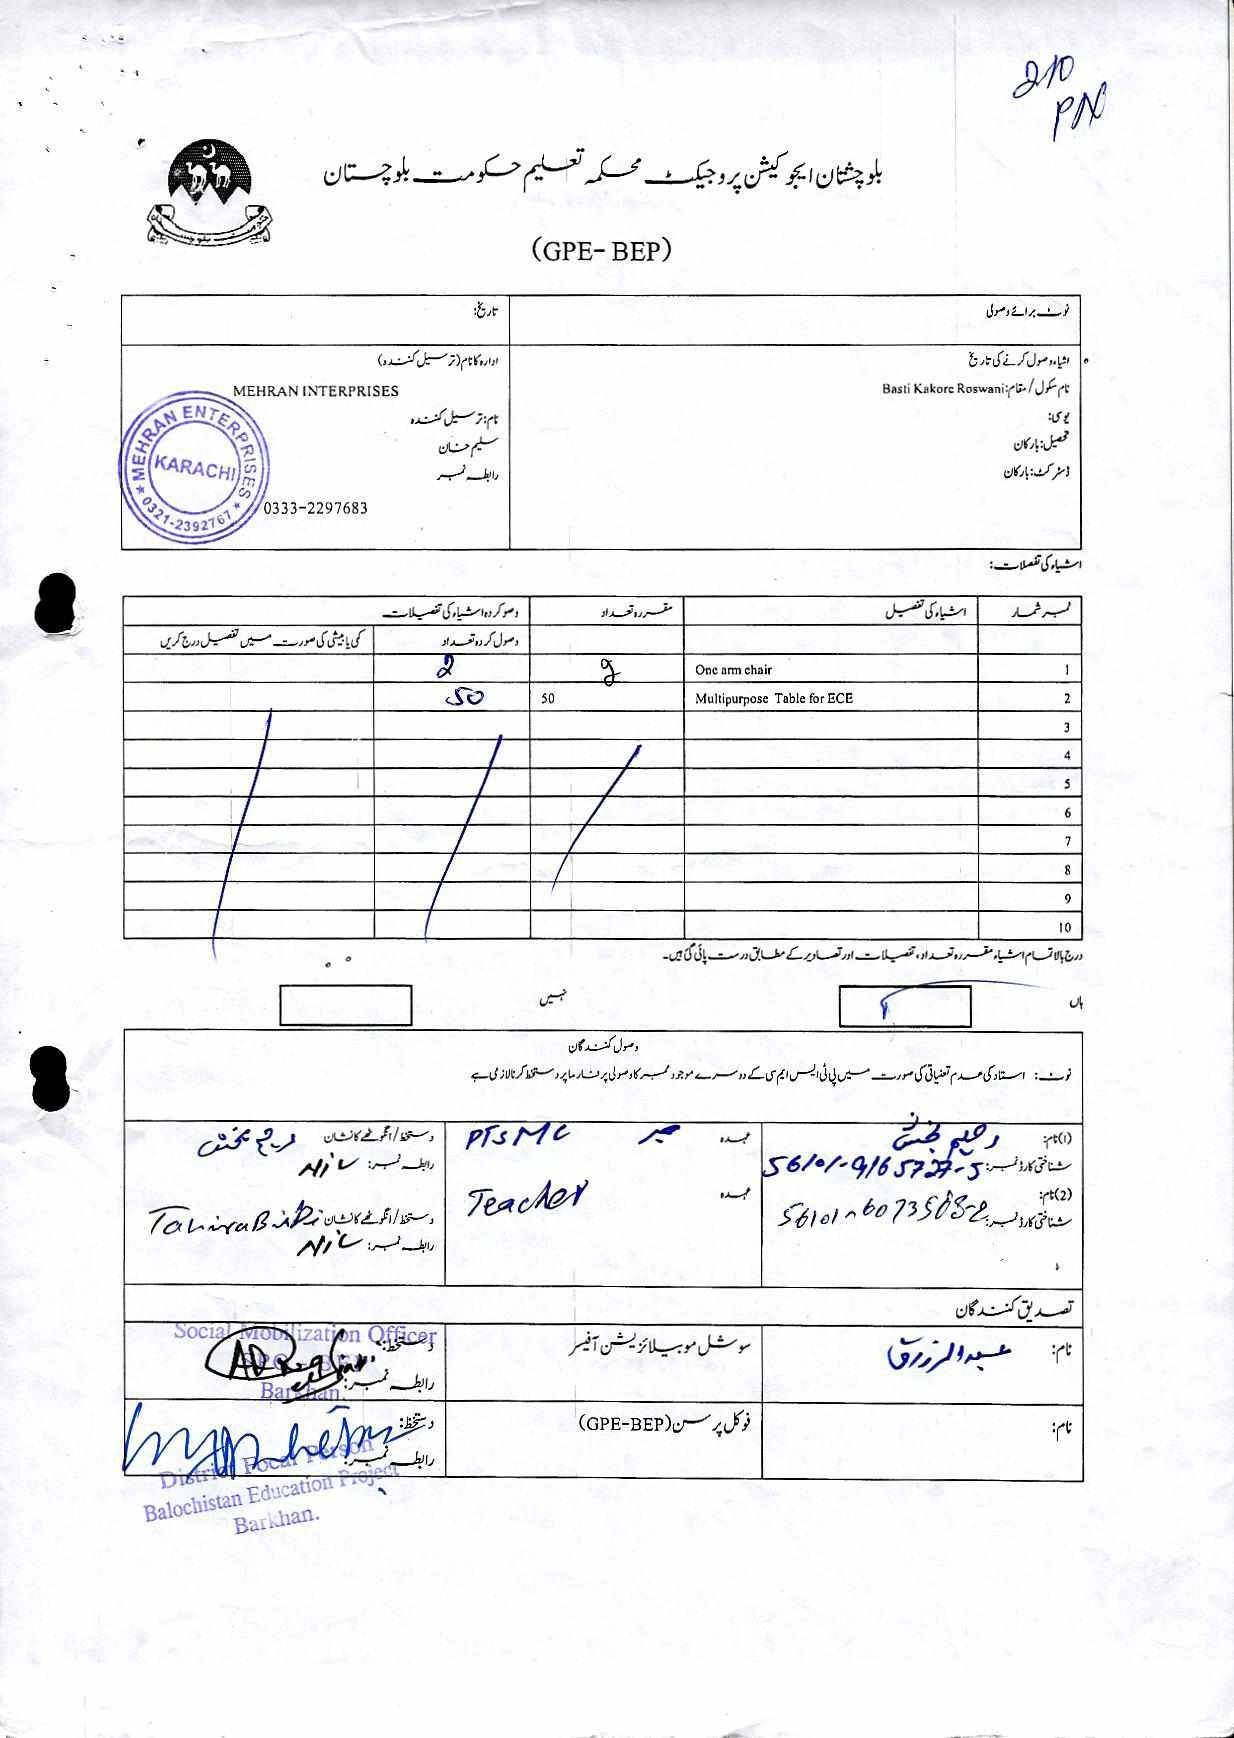 210
PN
بلوچستان ایجوکیشن پروجیکٹ محکمہ تعلیم حکومت بلوچستان
(GPE- BEP)
نوٹ برائے وصولی
تاریخ:
اشیاء وصول کرنے کی تاریخ
نام سکول / مقام: Basti Kakore Roswani
یوسی:
تحصیل: بارکان
ڈسٹرکٹ: بارکان
ادارہ کا نام (ترسیل کنندہ)
MEHRAN INTERPRISES
نام: ترسیل کنندہ
سلیم خان
رابطہ نمبر
0333-2297683
MEHRAN ENTERPRISES
KARACHI
0321-2392767
اشیاء کی تفصلات:
نمبر شمار اشیاء کی تفصیل مقررہ تعداد وصو کردہ اشیاء کی تفصیلات
وصول کردہ تعداد کمی یا بیشی کی صورت میں تفصیل درج کریں
1 One arm chair 2 2
2 Multipurpose Table for ECE 50 50
3
4
5
6
7
8
9
10
درج بالا تمام اشیاء مقررہ تعداد، تفصیلات اور تصاویر کے مطابق درست پائی گئی ہیں۔
ہاں
نہیں
وصول کنندگان
نوٹ: استاد کی عدم تعیناتی کی صورت میں پی ٹی ایس ایم سی کے دوسرے موجود ممبر کا وصولی پر فارما پر دستخط کرنا لازمی ہے
(1) نام: رحیم بخش عہدہ PTSMC دستخط / انگوٹھے کا نشان
شناختی کارڈ نمبر: 56101-9165727-5 رابطہ نمبر: Nic
(2) نام: عہدہ Teacher دستخط / انگوٹھے کا نشان Tahira Bibi
شناختی کارڈ نمبر: رابطہ نمبر: Nic
تصدیق کنندگان
نام: عبدالرزاق سوشل موبیلائزیشن آفیسر دستخط:
رابطہ نمبر:
Social Mobilization Officer
Barkhan.
نام: فوکل پرسن (GPE-BEP) دستخط:
رابطہ نمبر:
District Focal Person
Balochistan Education Project
Barkhan.